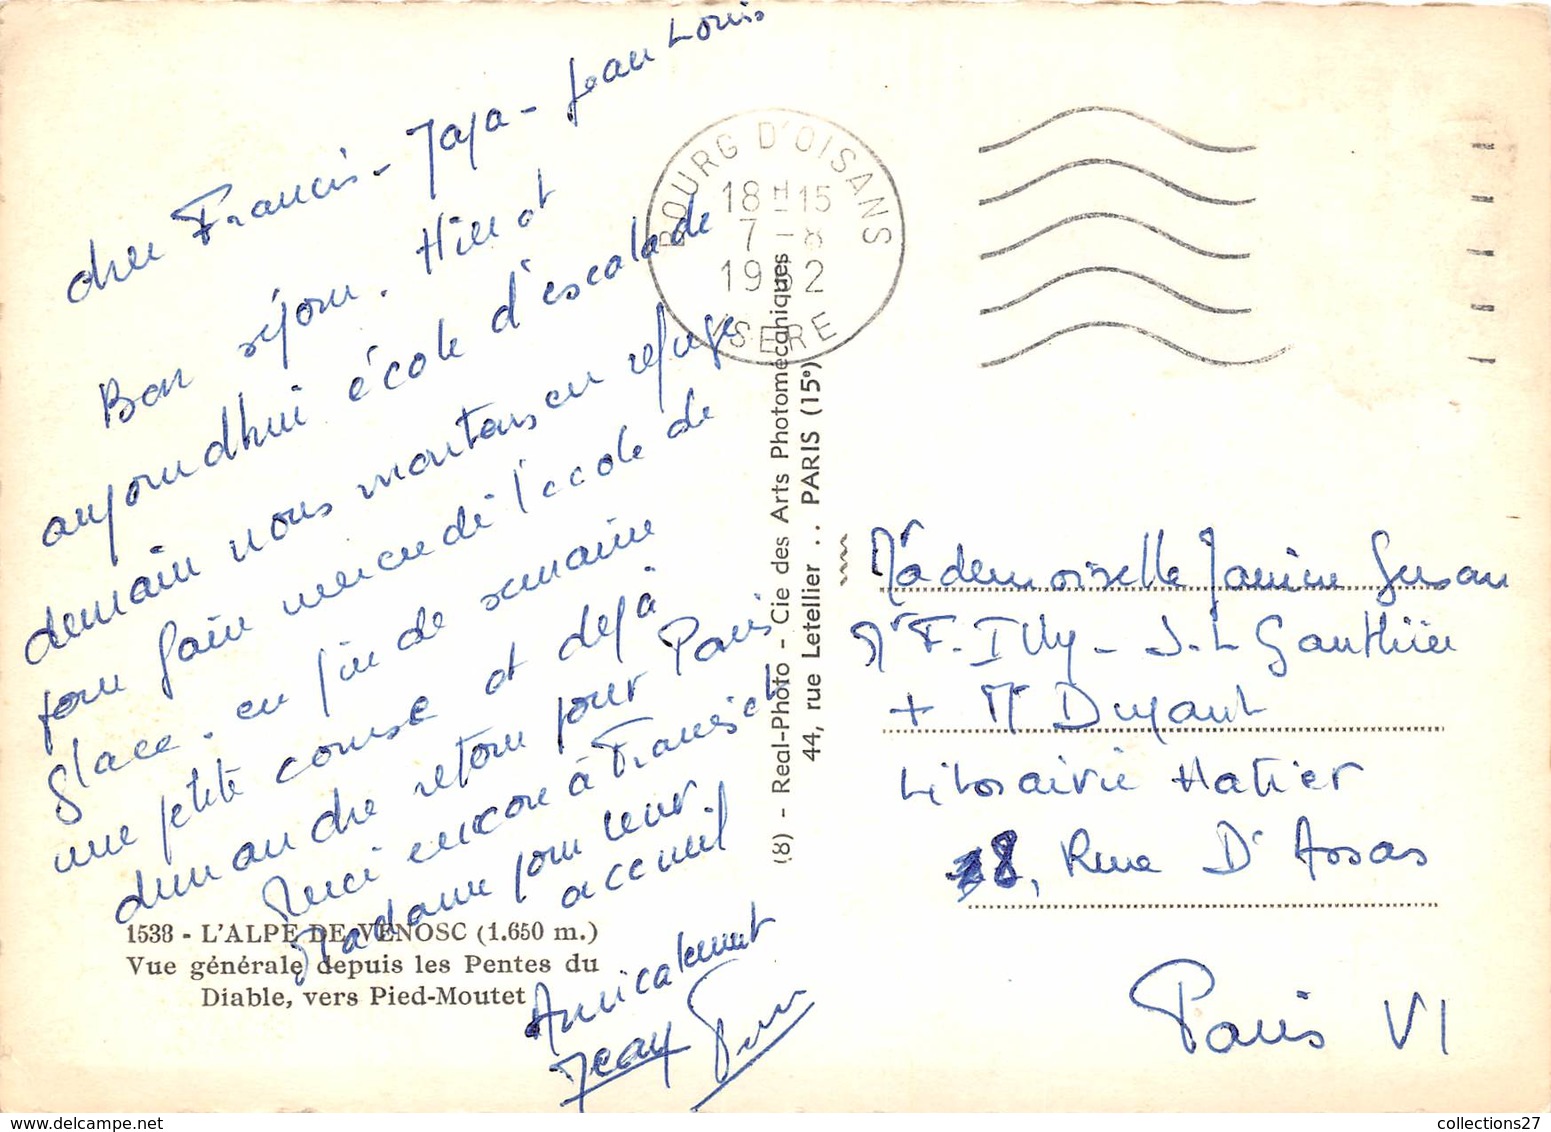 cher Francis - Jaja - Jean Louis
Bon séjour. Hier et
aujourd'hui école d'escalade
demain nous montons en refuge
pour faire mercredi l'école de
glace. en fin de semaine
une petite course et déjà
demandre retour pour Paris
Merci encore à Francis et
Madame pour leur
accueil
Amicalement
Jean
1538 - L'ALPE DE VENOSC (1.650 m.)
Vue générale depuis les Pentes du
Diable, vers Pied-Moutet
BOURG D'OISANS
18 H 15
7 - 8
19 2
ISERE
(8) - Real-Photo - Cie des Arts Photomécaniques
44, rue Letellier .. PARIS (15e)
Mademoiselle Janine Susan
Mr F. Illy - J.L Gauthier
+ Mr Dujant
Librairie Hatier
8, Rue D'Assas
Paris VI
collections27